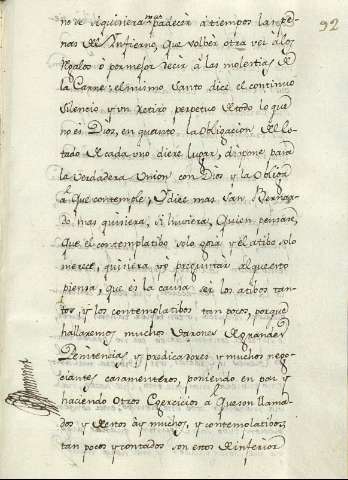 92
no se siquiniera mas padecer à tiempos las pe-
nas del Infierno, que volbèr otra vez à los
Regalos ò por mejor decir à las molestias de
la Carne: el mismo Santo dice el continuo
Silencio y un Retiro perpetuo de todo lo que
no es Dios, en quanto la obligacion del es-
tado de cada uno diere lugar, dispone para
la verdadera Union con Dios y la obliga
à que contemple, y dice mas San Bernar-
do, mas quisiera, si huviera, quien pensare,
que el contemplatibo solo goza y el atibo solo
merece, quisiera yò preguntar al que esto
piensa, que es la causa ser los atibos tan-
tos, y los contemplatibos tan pocos, porque
hallaremos muchos Varones de grandes
Penitencias y predicadores y muchos nego-
ciantes casamenteros, poniendo en paz y
haciendo otros Egercicios à que son llama-
dos y destos ày muchos, y contemplatibos,
tan pocos y contados son estos de inferior